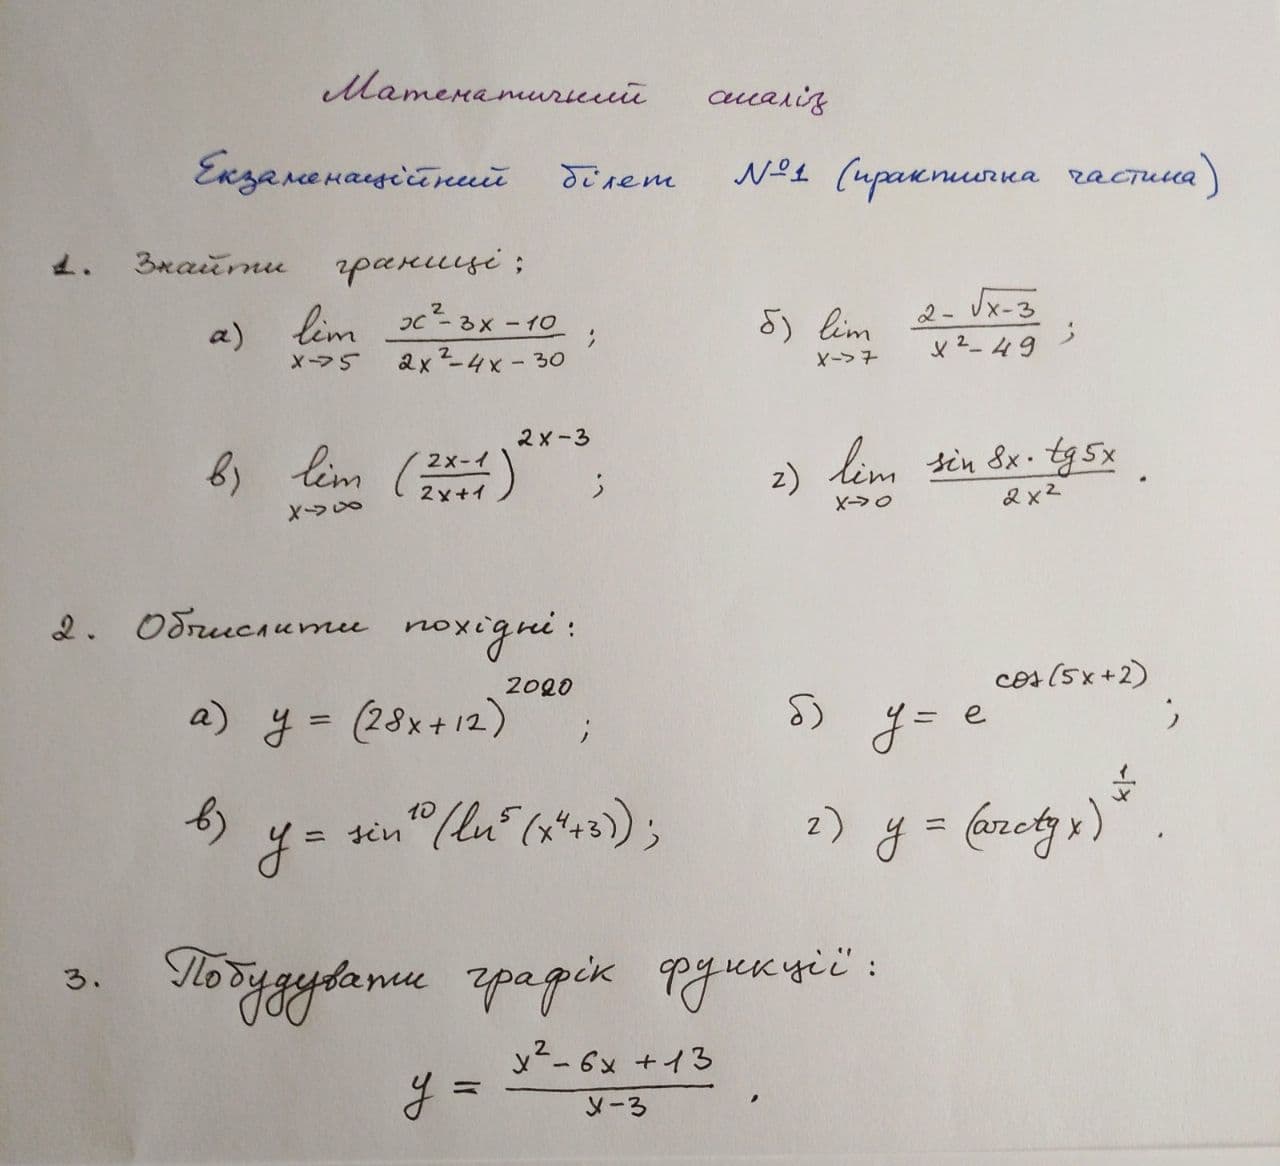 Математичний аналіз
Екзаменаційний білет №1 (практична частина)
1. Знайти границі:
а) lim x→5 (x² - 3x - 10)/(2x² - 4x - 30) ; б) lim x→7 (2 - √(x-3))/(x² - 49) ;
в) lim x→∞ ((2x-1)/(2x+1))^(2x-3) ; г) lim x→0 (sin 8x · tg 5x)/(2x²) .
2. Обчислити похідні:
а) y = (28x+12)^2020 ; б) y = e^(cos(5x+2)) ;
в) y = sin¹⁰(ln⁵(x⁴+3)) ; г) y = (arctg x)^(1/x) .
3. Побудувати графік функції:
y = (x² - 6x + 13)/(x-3) .